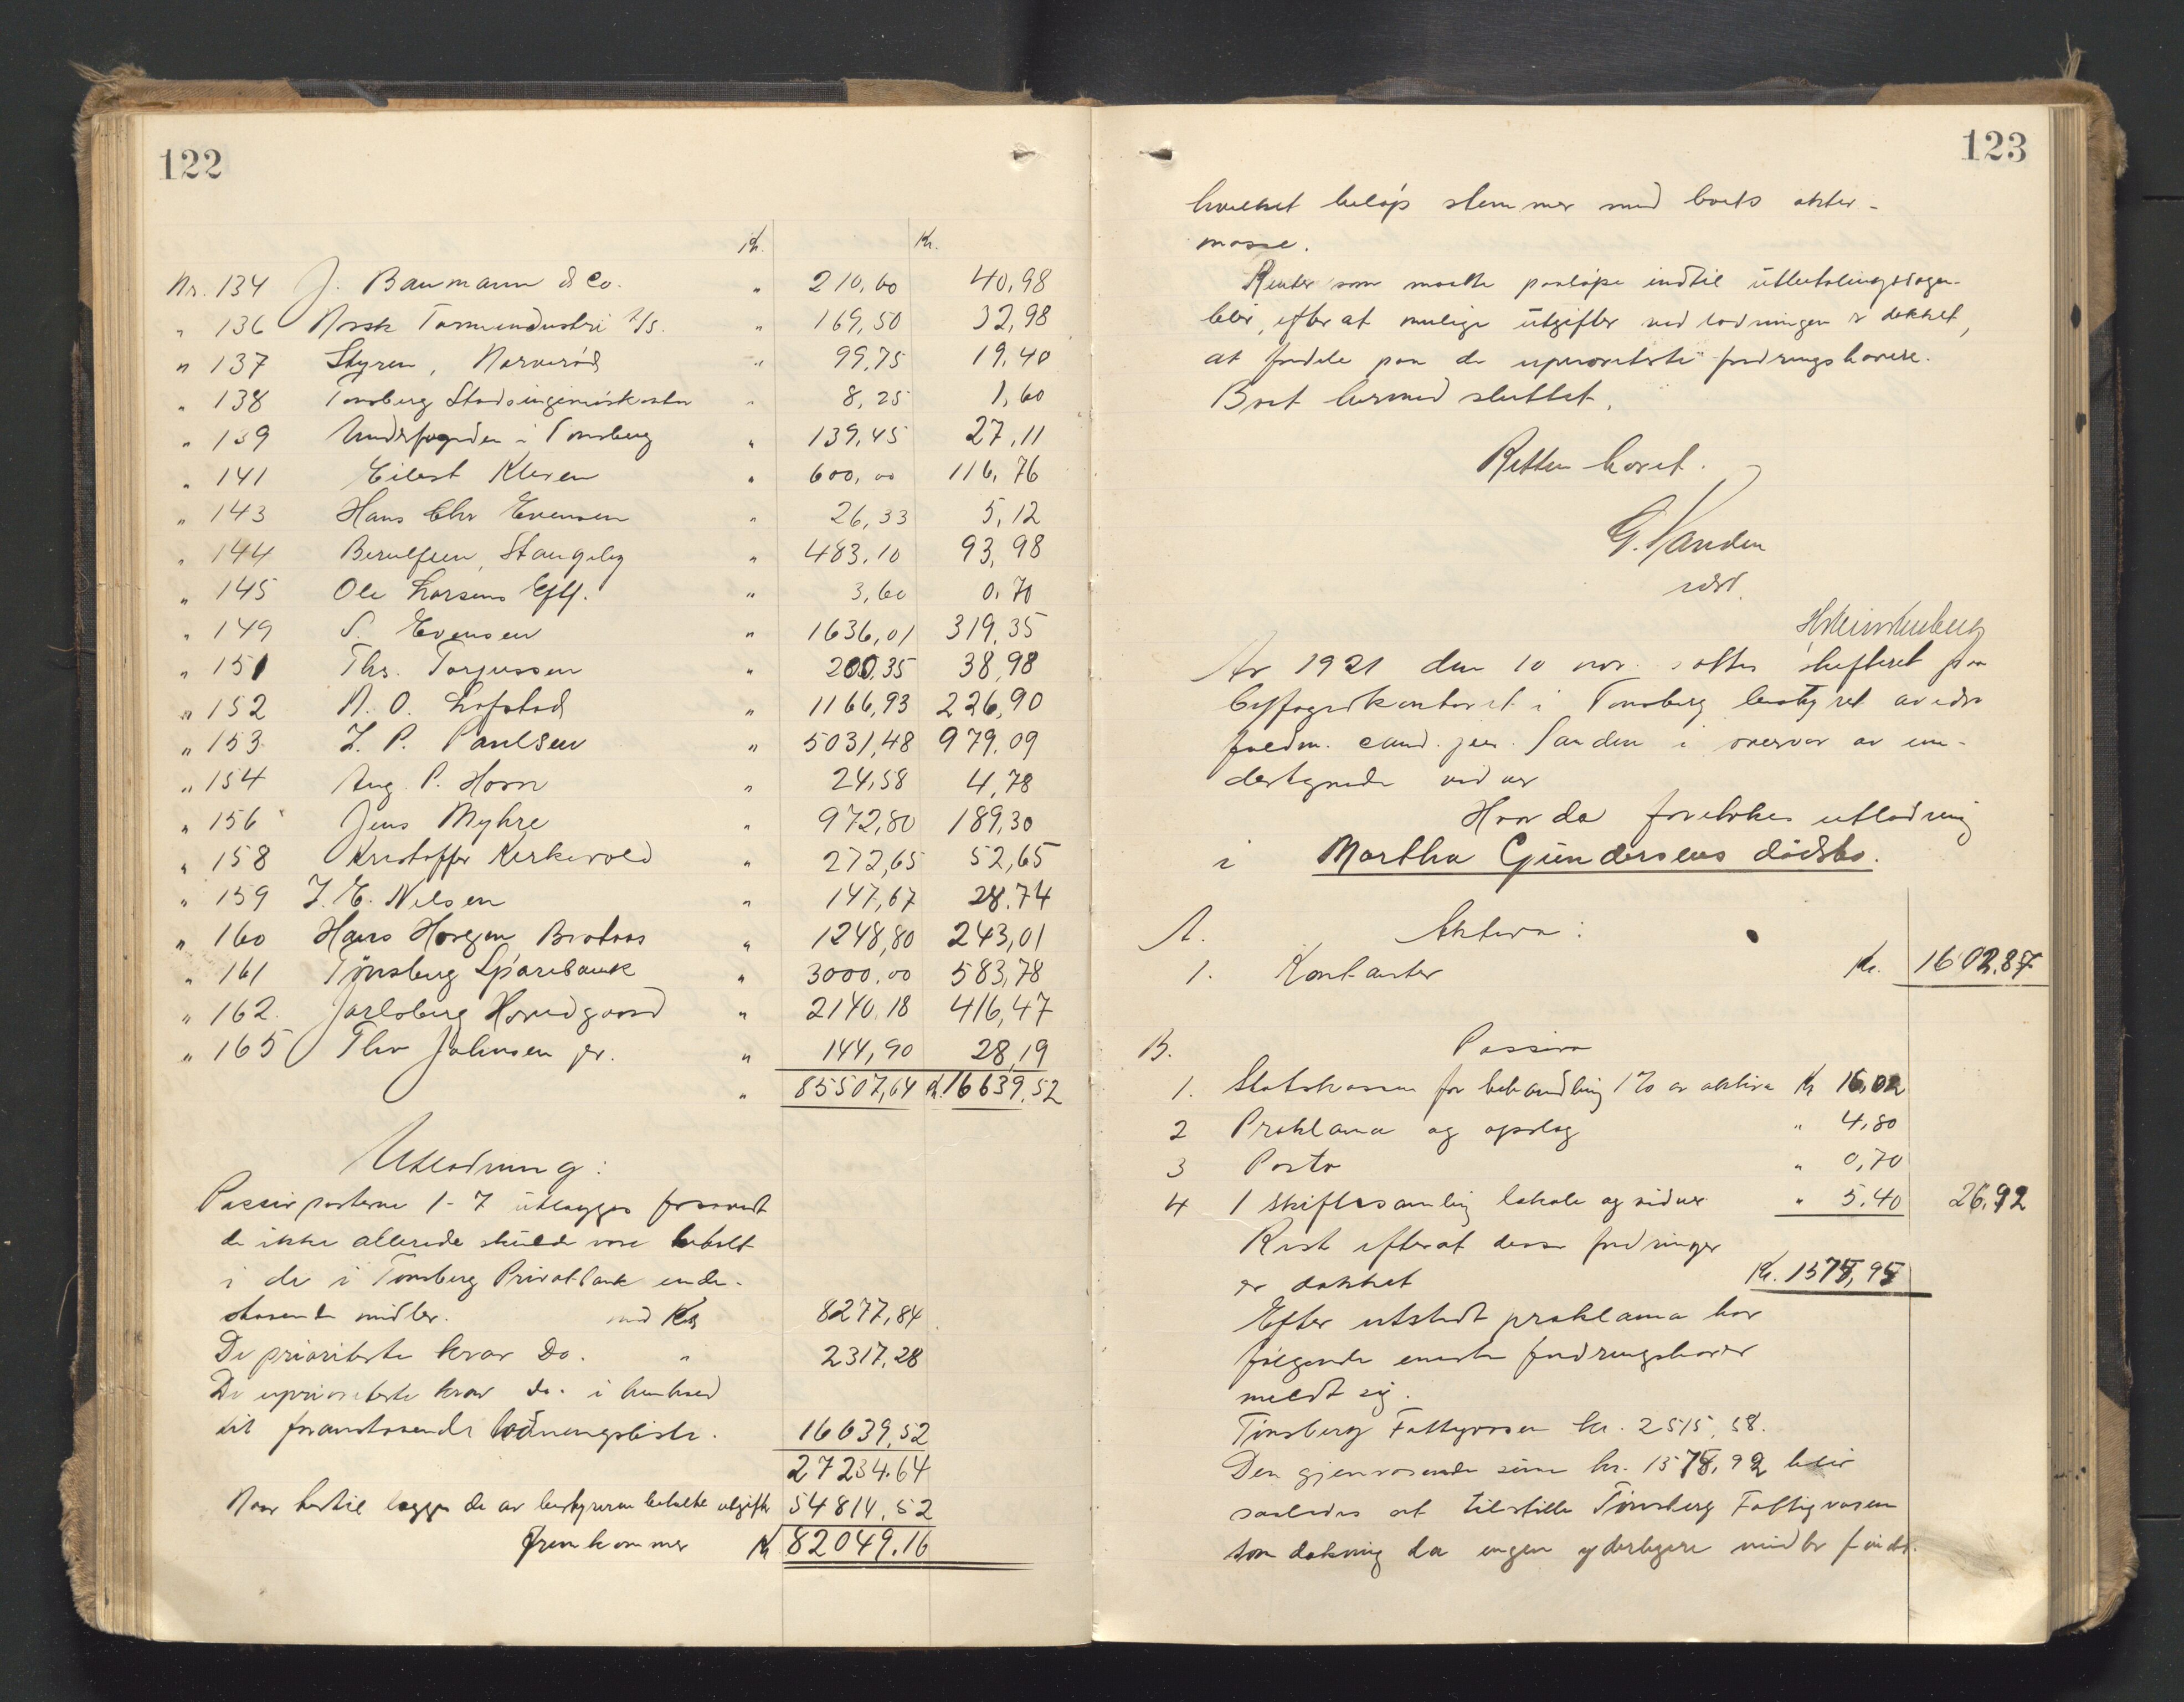 122
Kr. Kr.
Nr. 134 J. Baumann & Co. " 210,60 40,98
" 136 Norsk Tarmindustri A/S. " 169,50 32,98
" 137 Styren, Narverød " 99,75 19,40
" 138 Tønsberg Stadsingeniørkontor " 8,25 1,60
" 139 Underfogden i Tønsberg " 139,45 27,11
" 141 Eilert Kleven " 600,00 116,76
" 143 Hans Chr Evensen " 26,33 5,12
" 144 Berulfsen, Stangeby " 483,10 93,98
" 145 Ole Larsens Eftf. " 3,60 0,70
" 149 S. Evensen " 1636,01 319,35
" 151 Ths. Torjussen " 200,35 38,98
" 152 N. O. Lofstad " 1166,93 226,90
" 153 J. P. Paulsen " 5031,48 979,09
" 154 Aug. P. Horn " 24,58 4,78
" 156 Jens Myhre " 972,80 189,30
" 158 Kristoffer Kirkevold " 272,65 52,65
" 159 J. E. Nilsen " 147,67 28,74
" 160 Hans Horgen Brotaas " 1248,80 243,01
" 161 Tønsberg Sparebank " 3000,00 583,78
" 162. Jarlsberg Hovedgaard " 2140,18 416,47
" 165 Thv Johnsen jr. " 144,90 28,19
" 85507,64 Kr. 16639,52
Utlodning:
Passivposterne 1-7 utlægges forsaavidt
de ikke allerede skulde være betalt
i de i Tønsberg Privatbank inde-
staaende midler. med Kr 8277,84
De prioriterte krav do. " 2317,28
De uprioriterte krav do. i henhold
til foranstaaende lodningsliste. 16639,52
27234,64
Naar hertil lægges de av bestyreren betalte utgifter 54814,52
fremkommer Kr 82049,16
123
hvilket beløp stemmer med boets aktiv-
masse.
Renter som maatte paaløpe indtil utbetalingsdagen
blir, efter at mulige utgifter ved lodningen er dekket,
at fordele paa de uprioriterte fordringshavere.
Boet hermed sluttet.
Retten hævet.
G. Sanden
sest.
Aar 1921 den 10 nov. sattes skifteret paa
byfogedkontoret i Tønsberg bestyret av edsv
fuldm. cand. jur. Sanden i overvær av un-
dertegnede vidner
Hvor da foretokes utlodning
i Martha Gundersens dødsbo.
A. Aktiva:
1. Kontanter Kr. 1602,87
B. Passiva
1. Statskassen for behandling 1% av aktiva Kr 16,02
2 Proklama og opslag " 4,80
3 Porto " 0,70
4 1 skiftesamling lokale og vidner " 5,40 26,92
Rest efterat disse fordringer
er dækket Kr. 1575,95
Efter utstedt proklama har
følgende eneste fordringshaver
meldt sig.
Tønsberg Fattigvæsen kr. 2515,58.
Den gjenværende sum kr. 1575,92 blir
saaledes at tilstille Tønsberg Fattigvæsen
som dækning da ingen yderligere midler findes.